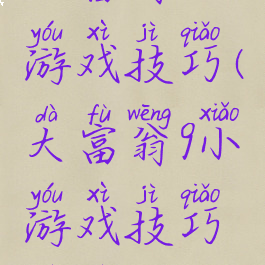 yóu xì jì qiǎo
游戏技巧(
dà fù wēng xiǎo
大富翁9小
yóu xì jì qiǎo
游戏技巧